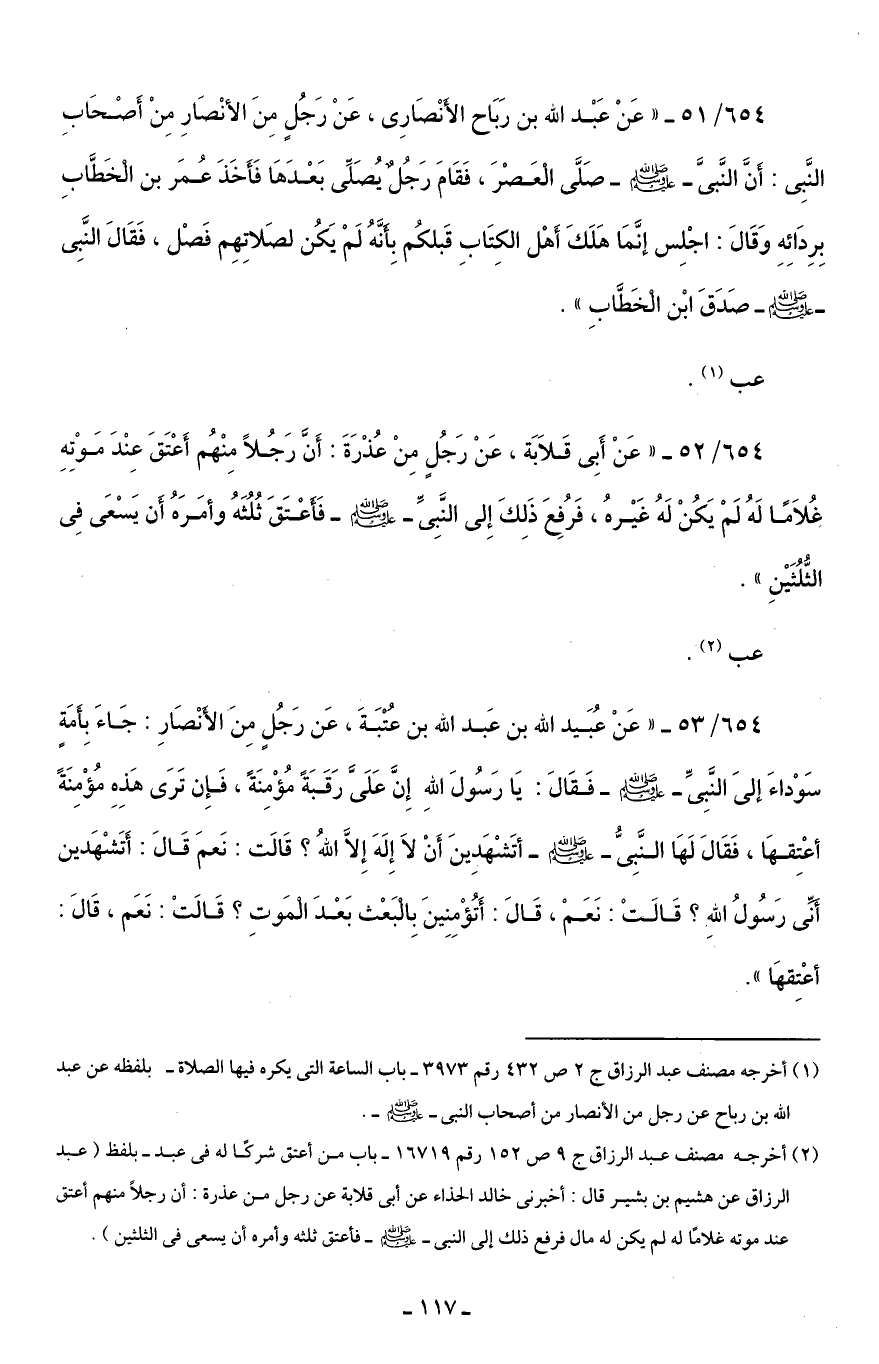 ٥١/٦٥٤ ـ « عَنْ عَبْـد الله بن رَبَاح الأَنْصَارِى ، عَنْ رَجُلٍ مِنَ الأنْصَارِ مِنْ أَصْـحَابِ
النَّبِى : أَنَّ النَّبِىَّ ـ ﷺ ـ صَلَّى الْعَـصْرَ ، فَقَامَ رَجُلٌ يُصَلِّى بَعْـدَهَا فَأَخَذَ عُـمَر بن الْخَطَّابِ
بِردَائِهِ وَقَالَ : اجْلِس إنَّمَا هَلَكَ أَهْل الكِتَابِ قَبلكُم بِأَنَّهُ لَمْ يَكُن لصَلاتِهِم فَصْل ، فَقَالَ النَّبِى
ـ ﷺ ـ صَدَقَ ابْن الْخَطَّابِ » .
عب (١) .
٥٢/٦٥٤ ـ « عَنْ أَبِى قَـلاَبَة ، عَنْ رَجُلٍ مِنْ عُذْرَةَ : أَنَّ رَجُـلاً مِنْهُم أَعْتَقَ عِنْدَ مَـوْتِهِ
غُلاَمًـا لَهُ لَمْ يَكُنْ لَهُ غَيْـرهُ ، فَرُفِعَ ذَلِكَ إلى النَّبِىِّ ـ ﷺ ـ فَأَعْـتَقَ ثُلُثَهُ وأمَـرَهُ أن يَسْعَى فِى
الثُّلُثَيْنِ » .
عب (٢) .
٥٣/٦٥٤ ـ « عَنْ عُبَـيد الله بن عَبـد الله بن عُتْبَـةَ ، عَن رَجُلٍ مِنَ الأَنْصَارِ : جَـاءَ بِأَمَةٍ
سَوْداءَ إلىَ النَّبِىِّ ـ ﷺ ـ فَـقَالَ : يَا رَسُولَ اللهِ إنَّ عَلَىَّ رَقَبَةً مُؤْمِنَةً ، فَـإن تَرَى هَذِهِ مُؤْمِنَةً
أعْتِقـهَا ، فَقَالَ لَهَا الـنَّبِىُّ ـ ﷺ ـ أتَشْهَدِينَ أَنْ لاَ إلَهَ إلاَّ اللهُ ؟ قَالَت : نَعمَ قَـالَ : أَتَشْهَدِين
أَنِّى رَسُولُ اللهِ ؟ قَـالَـتْ : نَعَـمْ ، قَـالَ : أَتُؤْمِنِينَ بِالْبَعْث بَعْـدَ الْمَوتِ ؟ قَـالَتْ : نَعَم ، قَالَ :
أعْتِقهَا ».
(١) أخرجه مصنف عبد الرزاق ج ٢ ص ٤٣٢ رقم ٣٩٧٣ ـ باب الساعة التى يكره فيها الصلاة ـ بلفظه عن عبد
الله بن رباح عن رجل من الأنصار من أصحاب النبى ـ ﷺ ـ .
(٢) أخرجـه مصنف عـبد الرزاق ج ٩ ص ١٥٢ رقم ١٦٧١٩ ـ باب مـن أعتق شركًـا له فى عبـد ـ بلفظ ( عـبد
الرزاق عن هشيم بن بشيـر قال : أخبرنى خالد الحذاء عن أبى قلابة عن رجل مـن عذرة : أن رجلاً منهم أعتق
عند موته غلامًا له لم يكن له مال فرفع ذلك إلى النبى ـ ﷺ ـ فأعتق ثلثه وأمره أن يسعى فى الثلثين ) .
ـ ١١٧ ـ